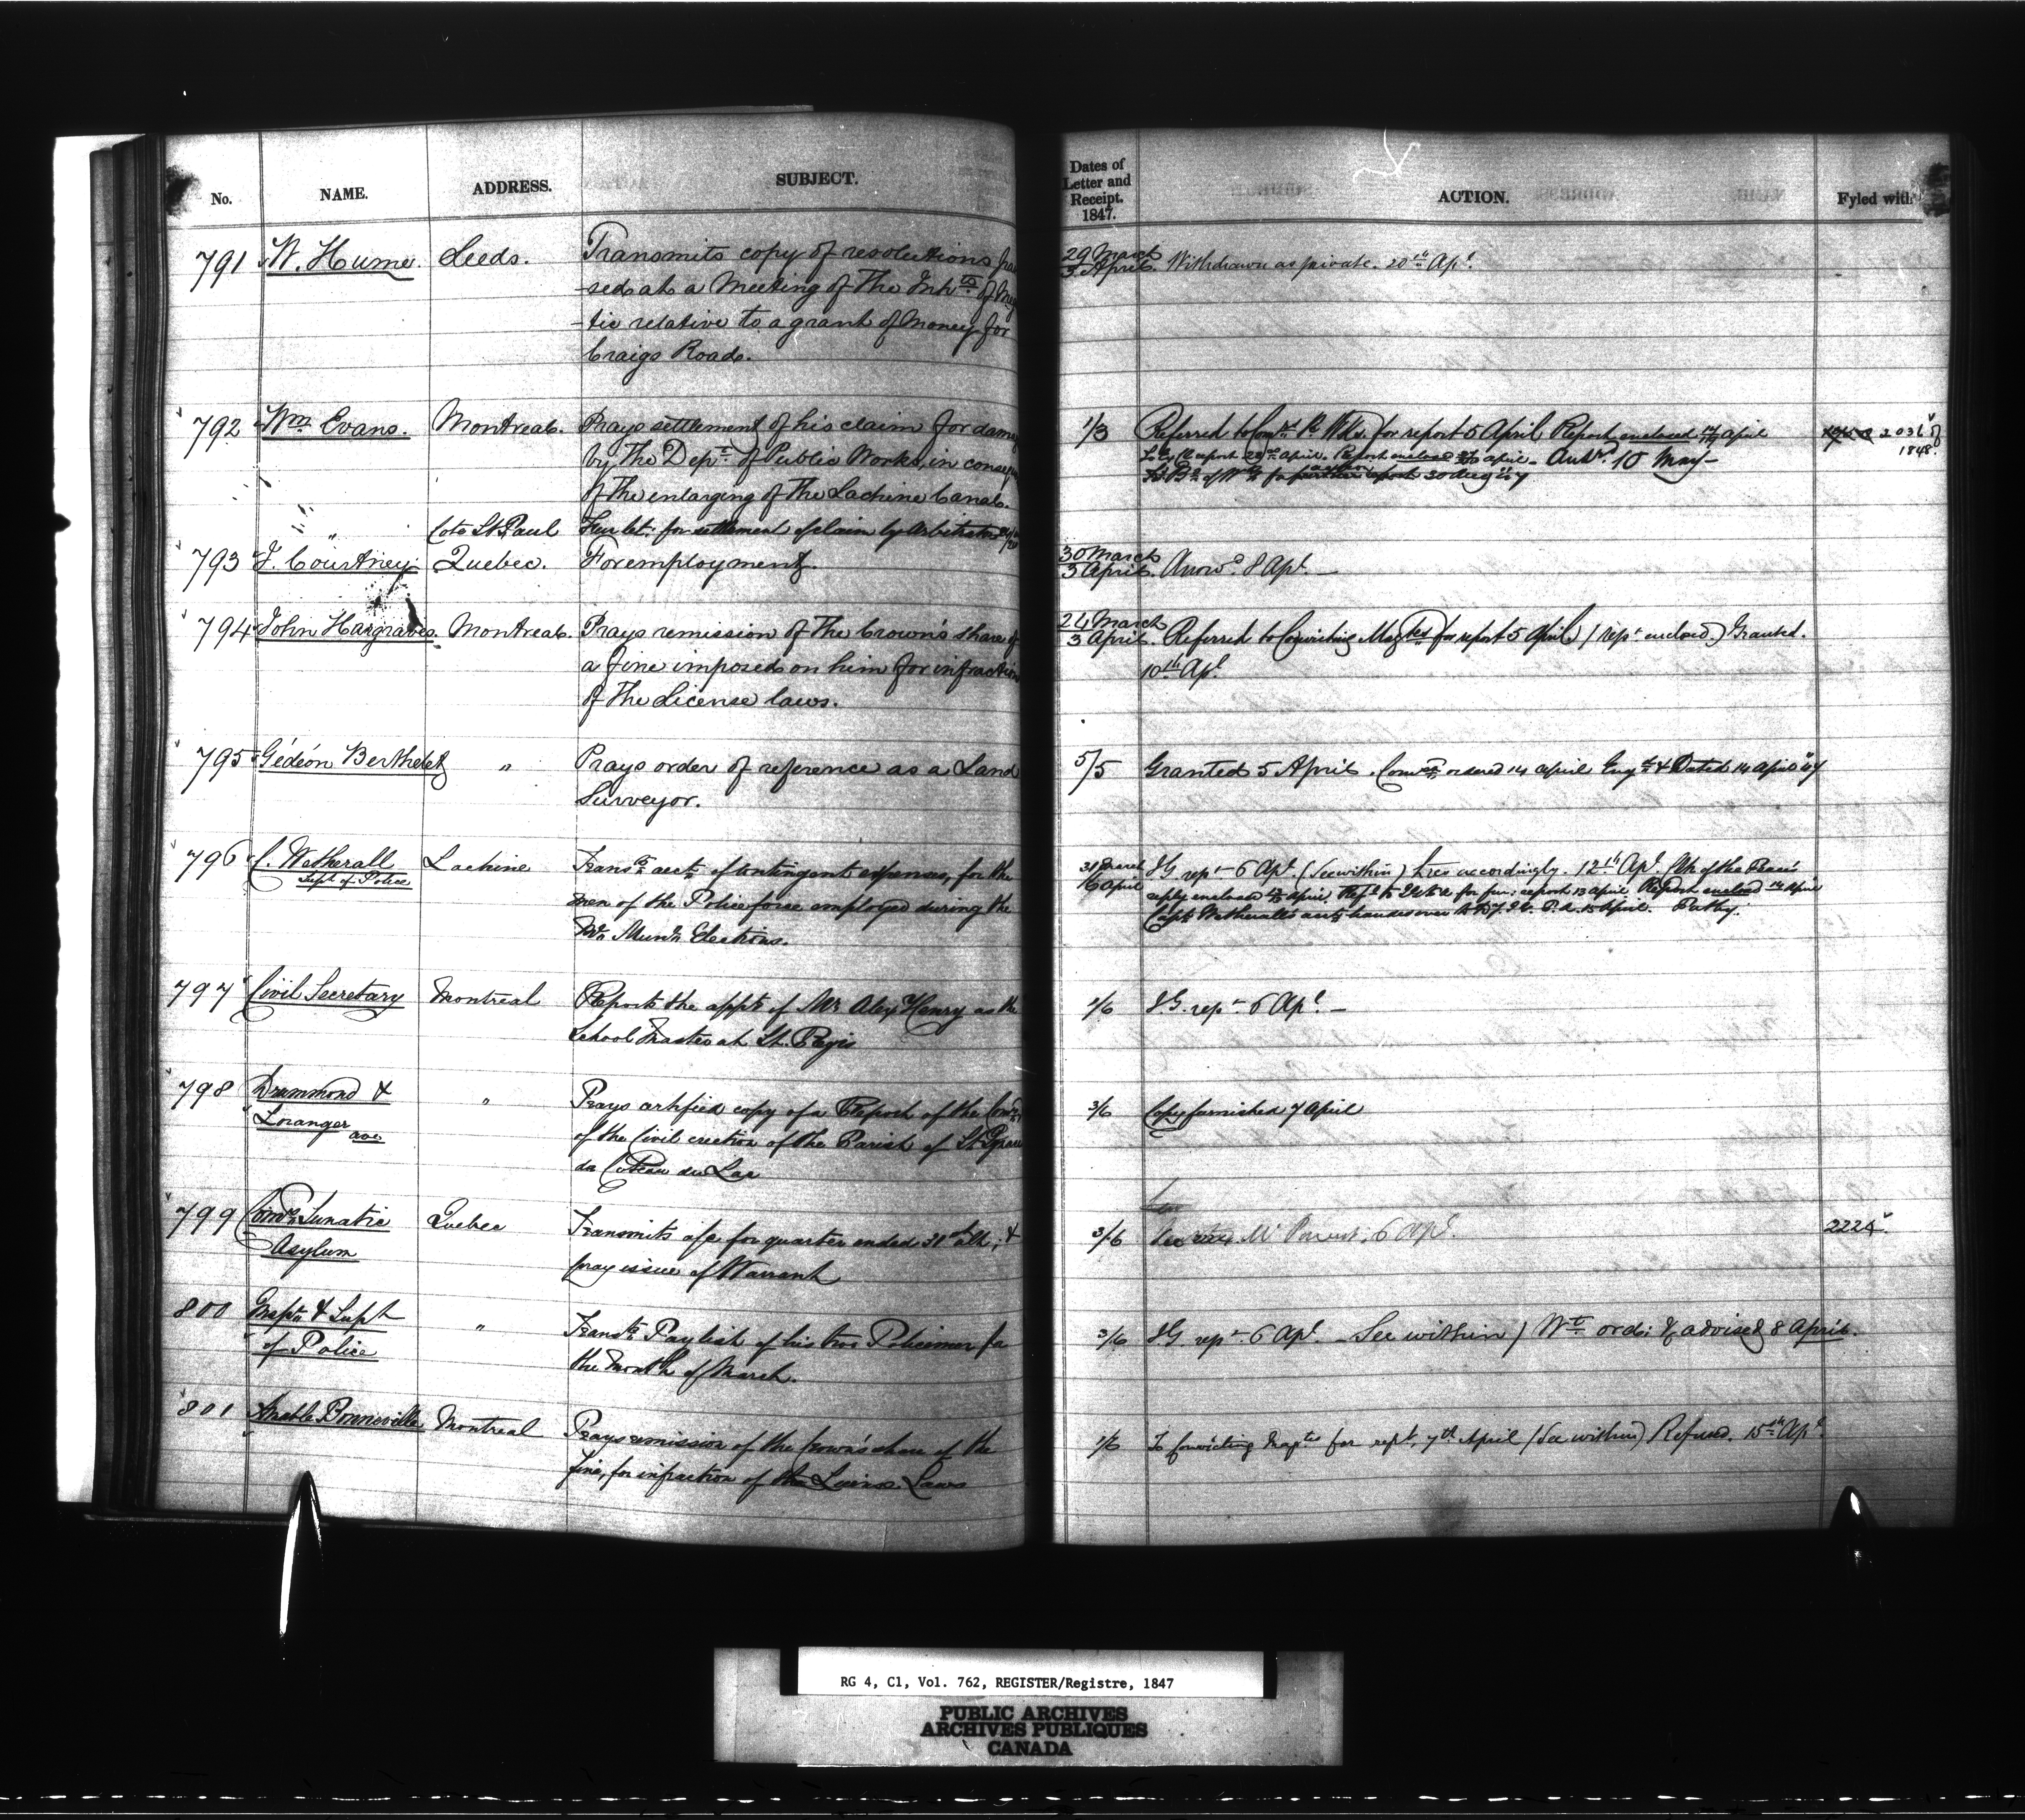 No. NAME. ADDRESS. SUBJECT.
791 W. Hume. Leeds. Transmits copy of resolutions pas
-sed at a Meeting of The Inhts of Meg
-tic relative to a grant of Money for
Craigs Road.
792 Wm Evans. Montreal. Prays settlement of his claim for dam
by The Dept of Public Works, in conseq
of the enlarging of The Lachine Canal.
" Cote St Paul Fur let: for settlement of claim by Arbitrators
793 J. Courtney Quebec. For employment.
794 John Hargraves. Montreal. Prays remission of The Crown's share of
a fine imposed on him for infraction
of The License laws.
795 Gédéon Berthelet " Prays order of reference as a Land
Surveyor.
796 C. Wetherall Lachine Transts accts of contingent expenses, for the
Supt of Police men of the Police force employed during the
Elections.
797 Civil Secretary Montreal Reports the appt of Mr Alex Henry as the
School Master at St. Regis
798 Drummond & " Prays certified copy of a Report of the Comrs
Loranger avo. of the Civil erection of the Parish of St Ignace
du Coteau du Lac
799 Comrs Lunatic Quebec Transmits a/c for quarter ended 31st ulto, &
Asylum pray issue of Warrant
800 Inspr & Supt " Transts Paylist of his two Policemen for
of Police the month of March.
801 Amable Bonneville Montreal Prays remission of the Crown's share of the
fine, for infraction of the License Laws
Dates of
Letter and
Receipt.
1847. ACTION. Fyled with
29 March
3 April. Withdrawn as private. 20th Apl.
1/3 Referred to Comrs P. Wks. for report 5 April Report enclosed 17 April 2031 of
1848.
report 22 April. Report enclosed April. Ansd. 10 May
30 March
3 April. Answd. 8 Apl.
24 March
3 April. Referred to Convicting Magtes for report 5 April / Rept enclosed.) Granted.
10th Apl.
5/5 Granted 5 April. Comn ordered 14 April Engd & Dated 14 April 47
31 March
6 April I.G. rept 6 Apl. (See within) accordingly. 12th Apl. Clk of the Peace's
reply enclosed April. Refd to for fur: report 13 April Report enclosed 14 April
Capt. Wetherall's accts handed over to 15 April.
1/6 I.G. rept 6 Apl.
3/6 Copy furnished 7 April
3/6 Mr Parent, 6 Apl. 2224.
3/6 I.G. rept 6 Apl. See within / Wt ord: & advised 8 April.
1/6 To Convicting Magtes for rept, 7th April (See within) Refused. 15th Apl.
RG 4, C1, Vol. 762, REGISTER/Registre, 1847
PUBLIC ARCHIVES
ARCHIVES PUBLIQUES
CANADA